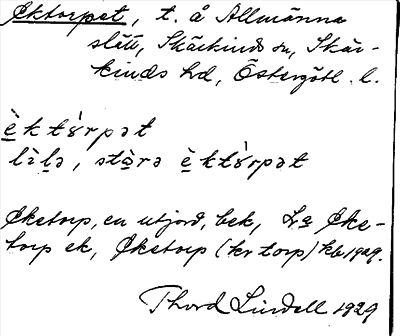 Ektorpet, t. å Allmänna
slätt, Skärkinds sn, Skär-
kinds hd, Östergötl. l.
è̱któ̤rpət
lìḻə, stò̱rə è̱któ̤rpət
Eketorp, en utjord, bek,
torp ek, Eketorp (kr torp) kb 1929.
Thord Lindell 1929